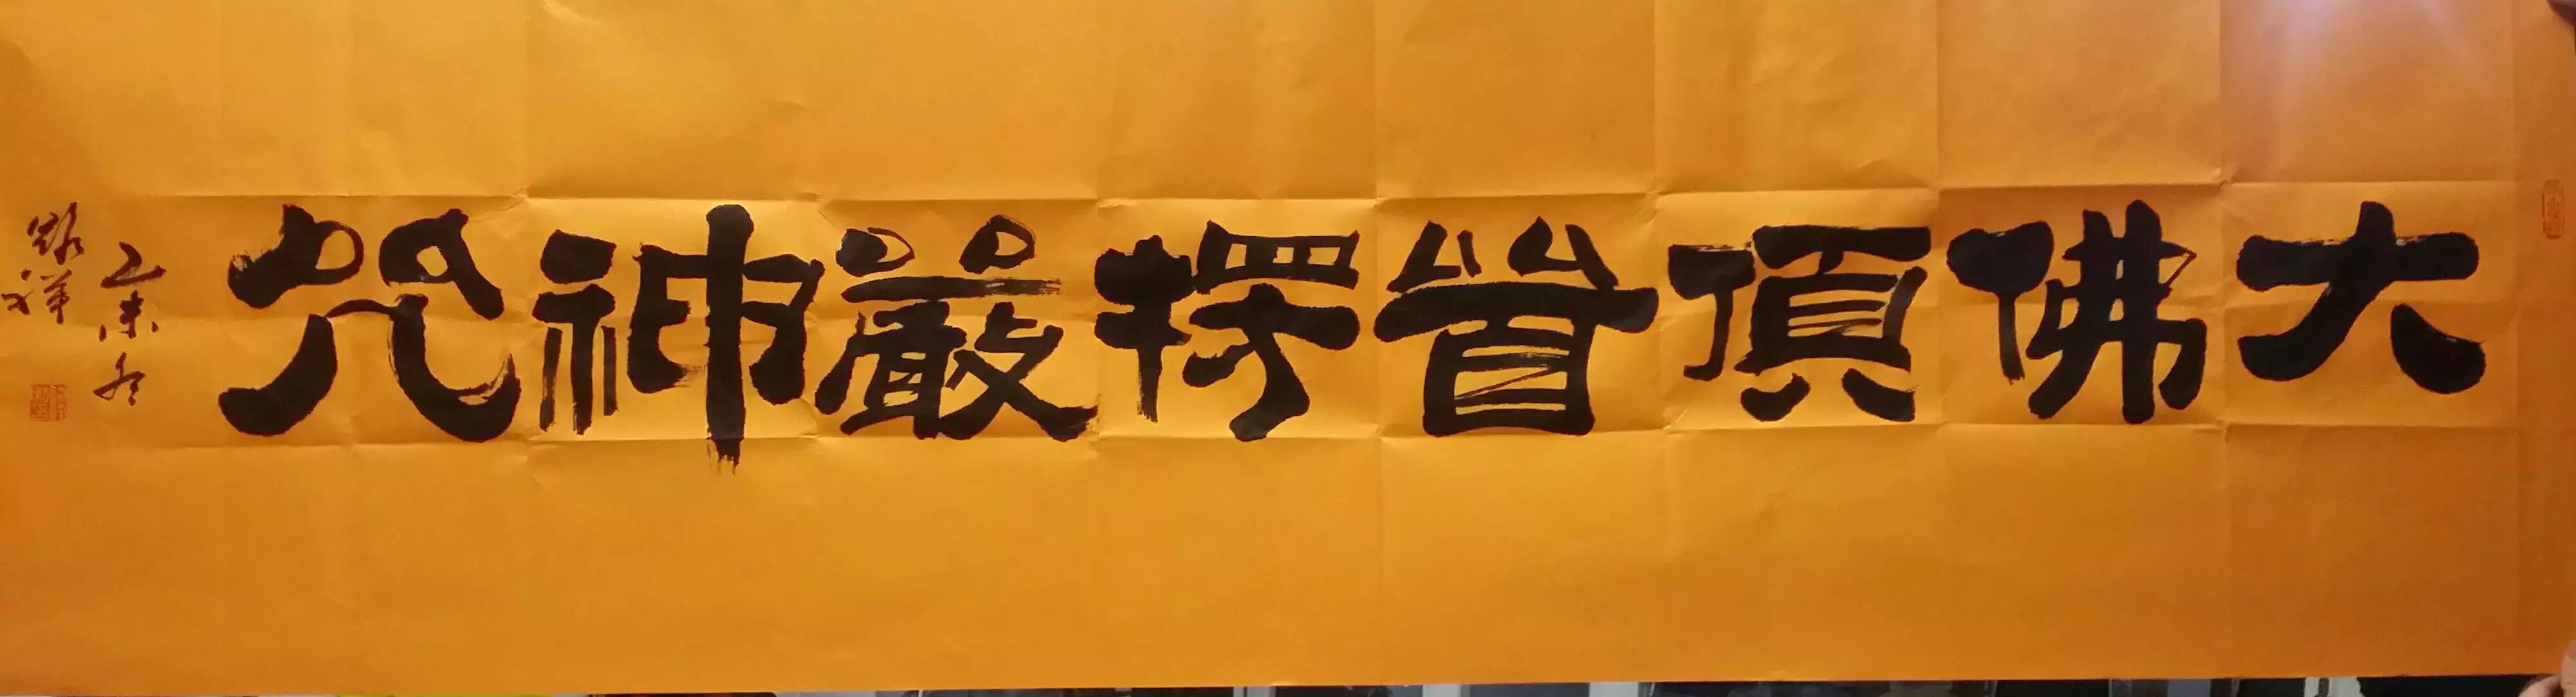 大佛頂首楞嚴神咒
乙未冬
祥